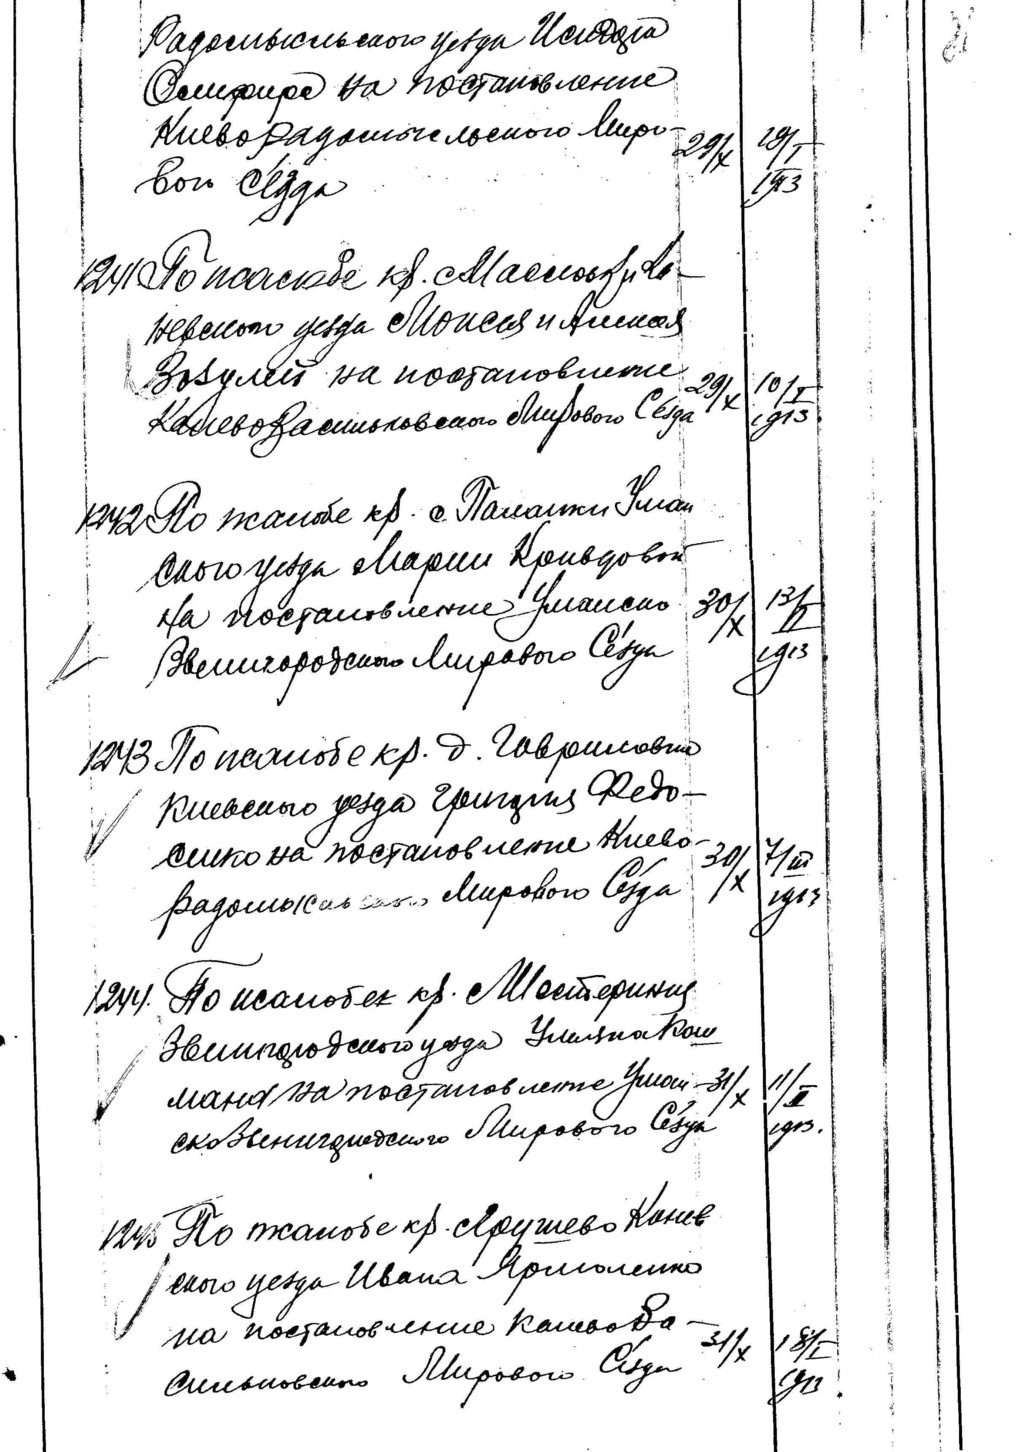 Радомысльского уезда Исидора
на постановление
Киеворадомысльского Миро-
вого Съезда 29/X 19/I 1913
1241 По жалобе кр. с Масловки Ка-
невского уезда Моисея и Алексея
Зозулей на постановление
КаневоВасильковского Мирового Съезда 29/X 10/I 1913.
1242 По жалобе кр. с. Паланки Уман
ского уезда Марии Кривдовой
на постановление Уманско
Звенигородского Мирового Съезда 30/X 13/II 1913.
1243 По жалобе кр. д. Гавриловки
Киевского уезда Григория Федо-
сенко на постановление Киево-
радомысльского Мирового Съезда 30/X 7/III 1913
1244. По жалобе кр. с Шестеринцы
Звенигородского уезда Ульяна Кош
мана на постановление Уман-
скоЗвенигородского Мирового Съезда 31/X 11/II 1913.
1245 По жалобе кр. с Ярушево Канев
ского уезда Ивана Ярмоленко
на постановление КаневоВа-
сильковского Мирового Съезда 31/X 18/I 1913.